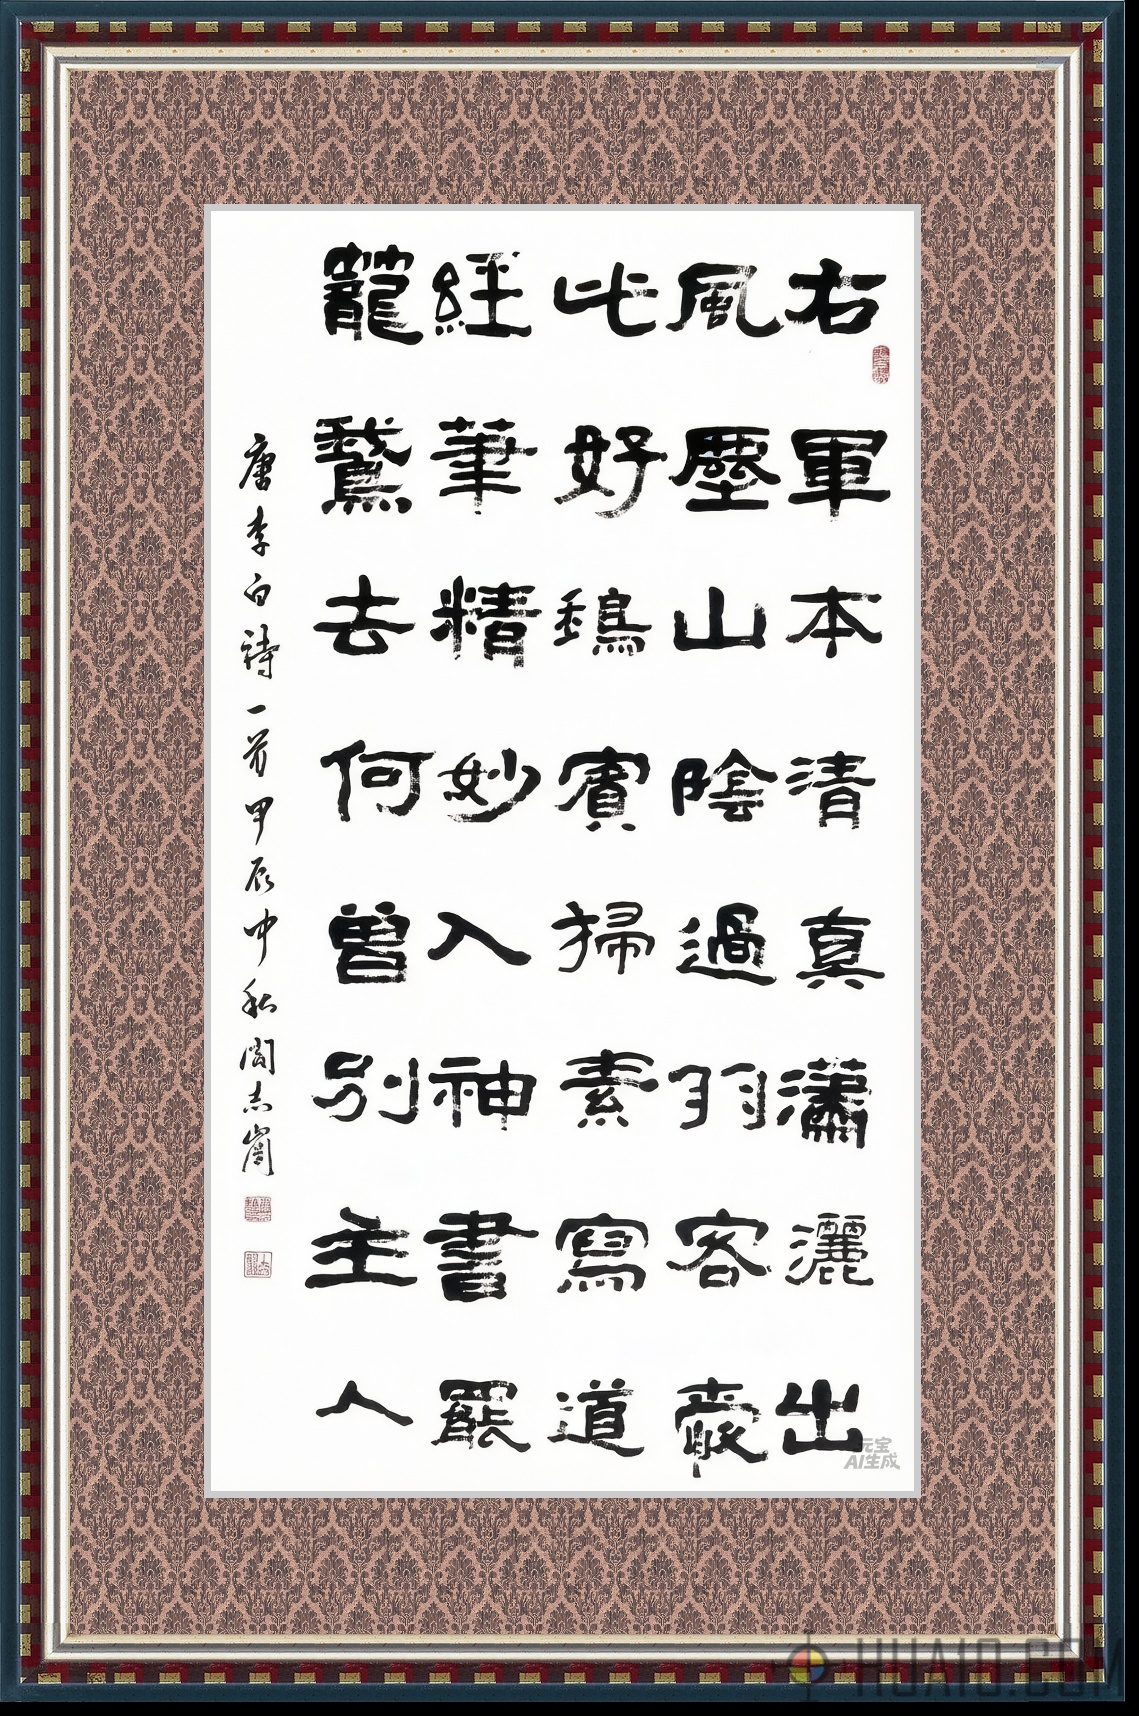 右軍本清真瀟灑出
風塵山陰過羽客愛
此好鵝賓掃素寫道
經筆精妙入神書罷
籠鵞去何曾別主人
唐李白詩一首甲辰中秋閻志崗
元宝
AI生成
HUA10.COM